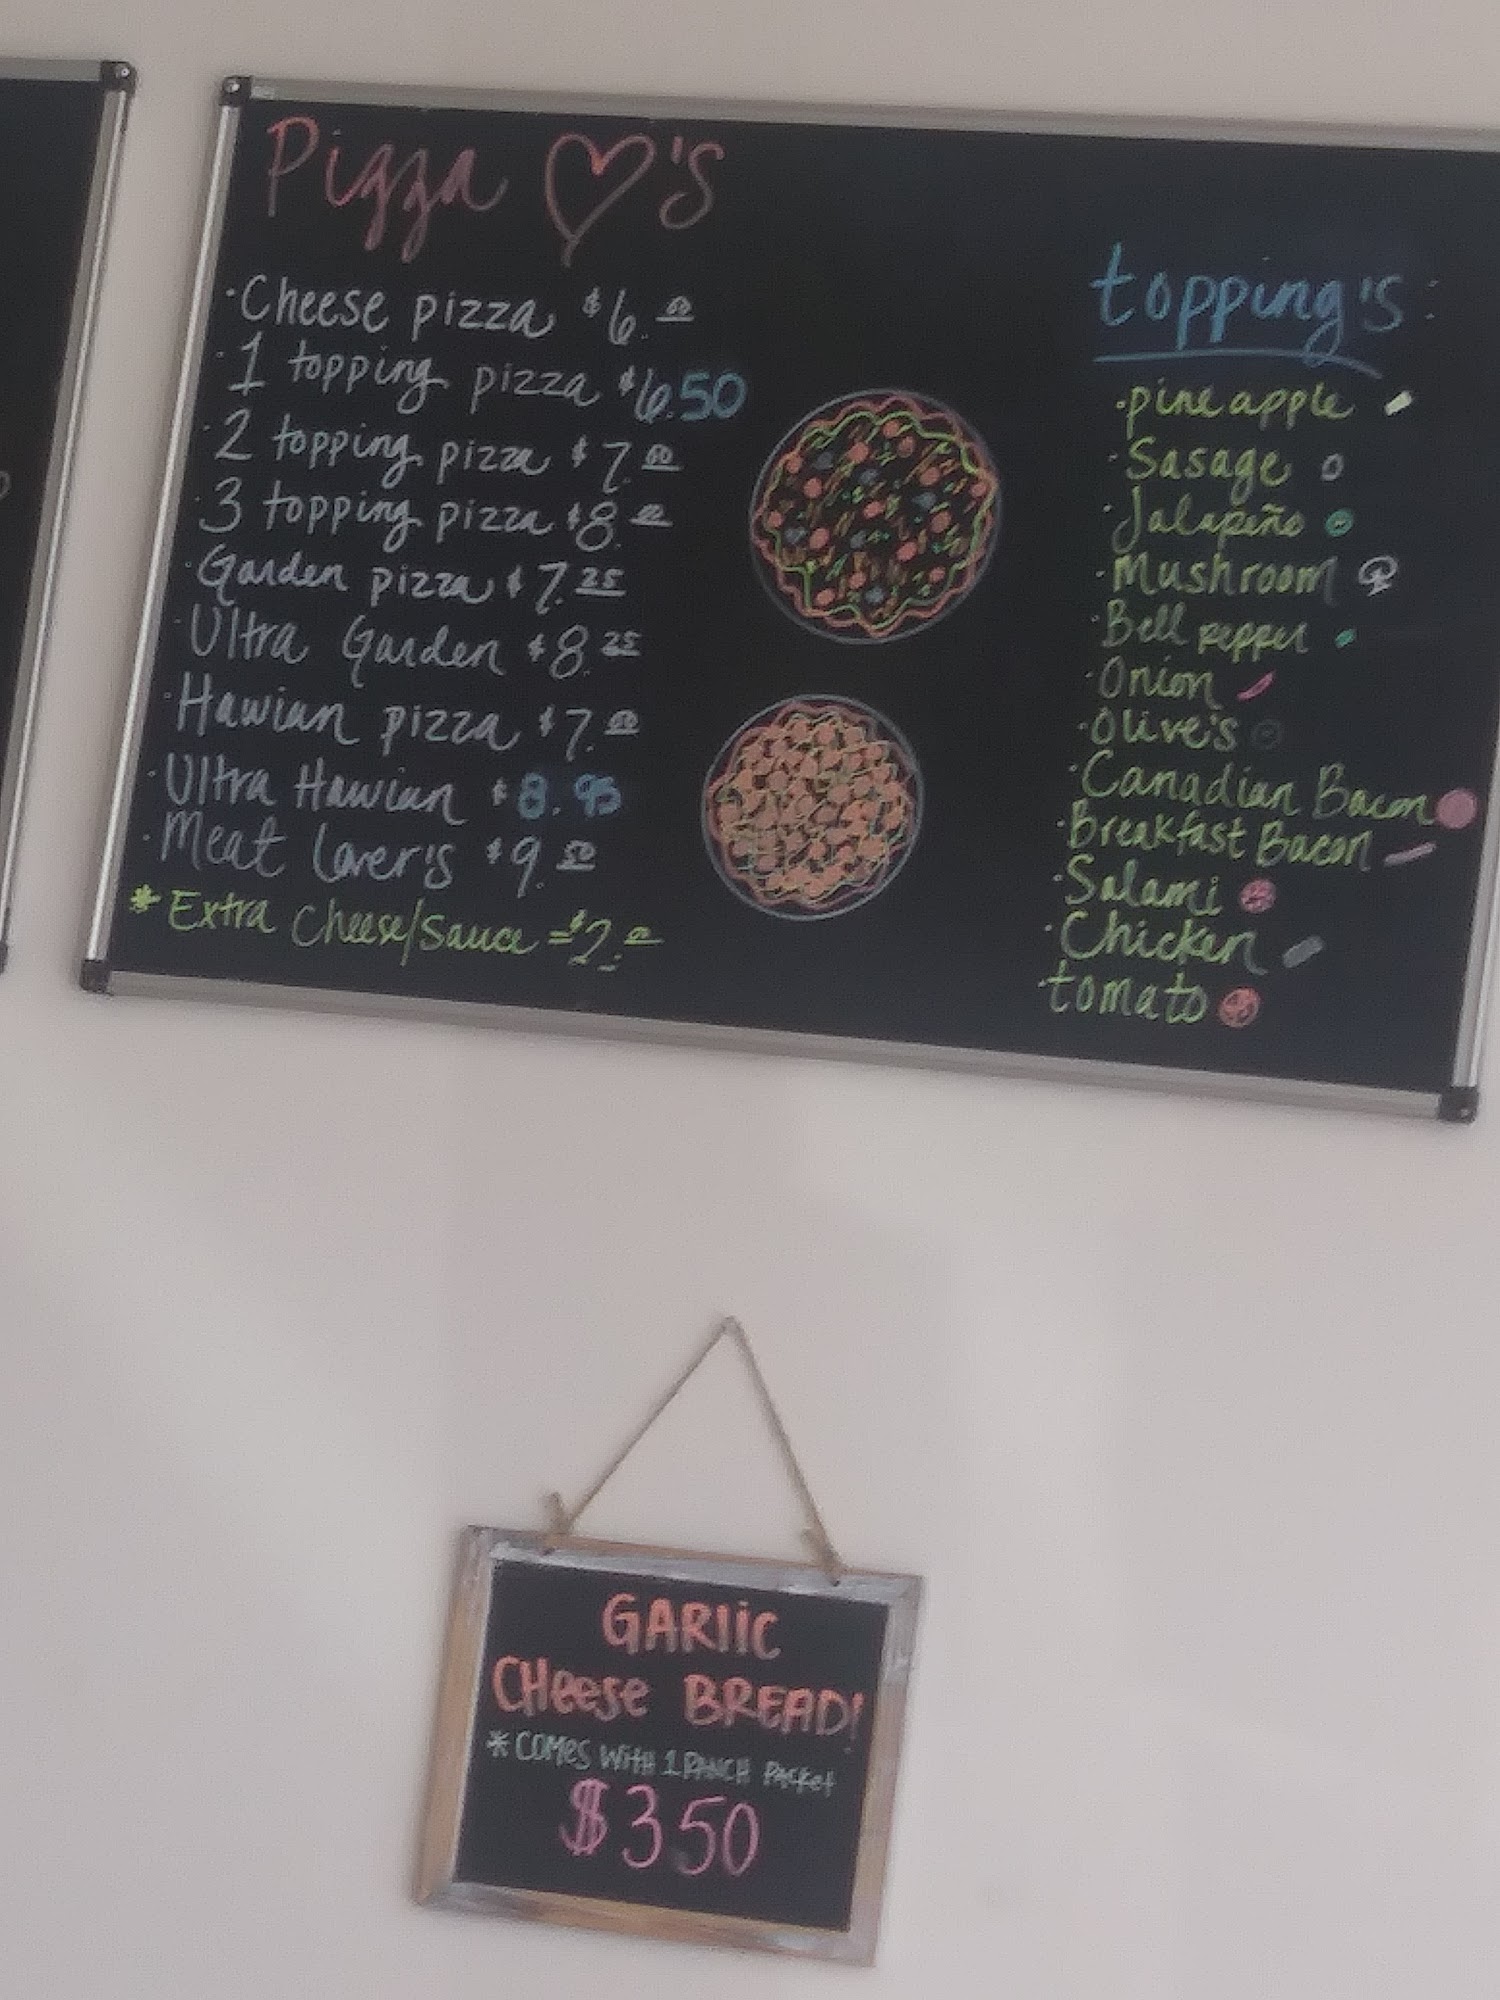 Pizza ♡'s
·Cheese pizza $6.00
·1 topping pizza $6.50
·2 topping pizza $7.00
·3 topping pizza $8.00
·Garden pizza $7.25
·Ultra Garden $8.25
·Hawian pizza $7.00
·Ultra Hawian $8.95
·Meat Lover's $9.50
* Extra Cheese/Sauce = $2.00
topping's:
·pineapple
·Sasage
·Jalapeño
·Mushroom
·Bell pepper
·Onion
·Olive's
·Canadian Bacon
·Breakfast Bacon
·Salami
·Chicken
·tomato
GARlic
CHeese BREAD!
*COMes WiTH 1 RANCH PACKet
$350